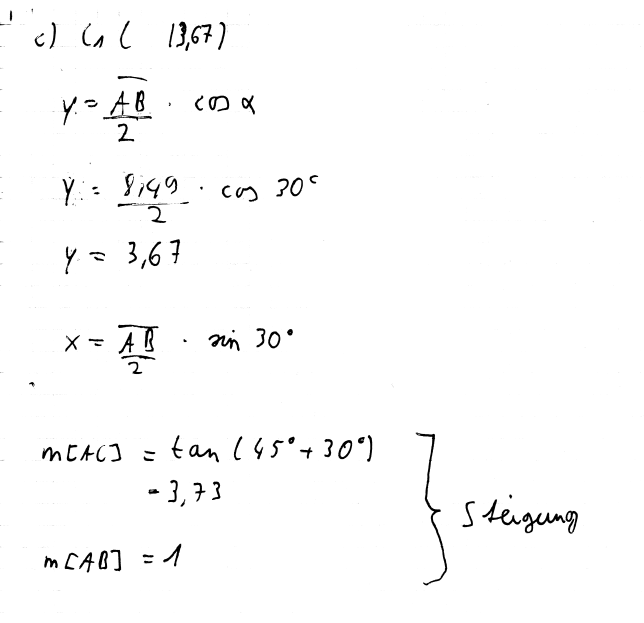 c) C₁ (    |3,67)
y = \frac{\overline{AB}}{2} · cos α
y = \frac{8,49}{2} · cos 30°
y = 3,67
x = \frac{\overline{AB}}{2} · sin 30°
m[AC] = tan (45° + 30°)
= 3,73
Steigung
m[AB] = 1